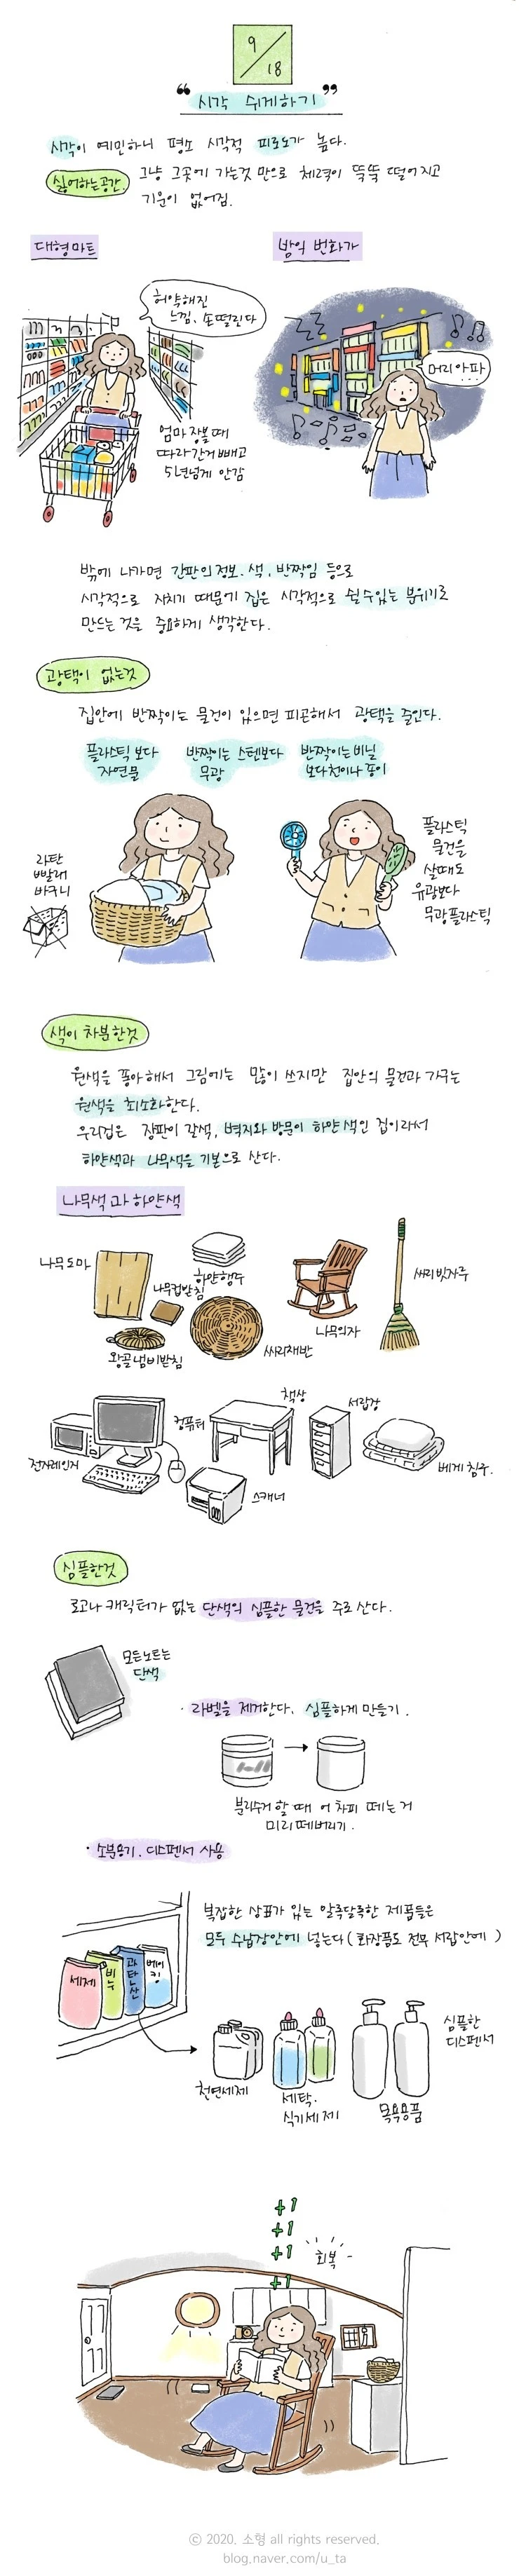 9/18
“시각 쉬게하기”
시각이 예민하니 평소 시각적 피로도가 높다.
싫어하는공간. 그냥 그곳에 가는것 만으로 체력이 뚝뚝 떨어지고
기운이 없어짐.
대형마트
밤의 번화가
허약해진
느낌, 손떨린다
머리아파
...
엄마 장볼때
따라간거 빼고
5년넘게 안감
밖에 나가면 간판의 정보. 색, 반짝임 등으로
시각적으로 지치기 때문에 집은 시각적으로 쉴수있는 분위기로
만드는 것을 중요하게 생각한다.
광택이 없는것
집안에 반짝이는 물건이 있으면 피곤해서 광택을 줄인다.
플라스틱 보다
자연물
반짝이는 스텐보다
무광
반짝이는 비닐
보다 천이나 종이
라탄
빨래
바구니
플라스틱
물건을
살때도
유광보다
무광플라스틱
색이 차분한것
원색을 좋아해서 그림에는 많이 쓰지만 집안의 물건과 가구는
원색을 최소화한다.
우리집은 장판이 갈색, 벽지와 방문이 하얀 색인 집이라서
하얀색과 나무색을 기본으로 산다.
나무색과 하얀색
나무도마
하얀행주
나무컵받침
왕골냄비받침
싸리채반
나무의자
싸리빗자루
전자레인지
컴퓨터
책상
서랍장
스캐너
베게 침구.
심플한것
로고나 캐릭터가 없는 단색의 심플한 물건을 주로 산다.
모든노트는
단색
· 라벨을 제거한다. 심플하게 만들기.
분리수거 할 때 어차피 떼는거
미리 떼버리기.
· 소분용기. 디스펜서 사용
복잡한 상표가 있는 알록달록한 제품들은
모두 수납장안에 넣는다 (화장품도 전부 서랍안에)
세제
비누
과탄산
베이킹
천연세제
세탁.
식기세제
목욕용품
심플한
디스펜서
+1
+1
+1
+1
회복
ⓒ 2020. 소형 all rights reserved.
blog.naver.com/u_ta